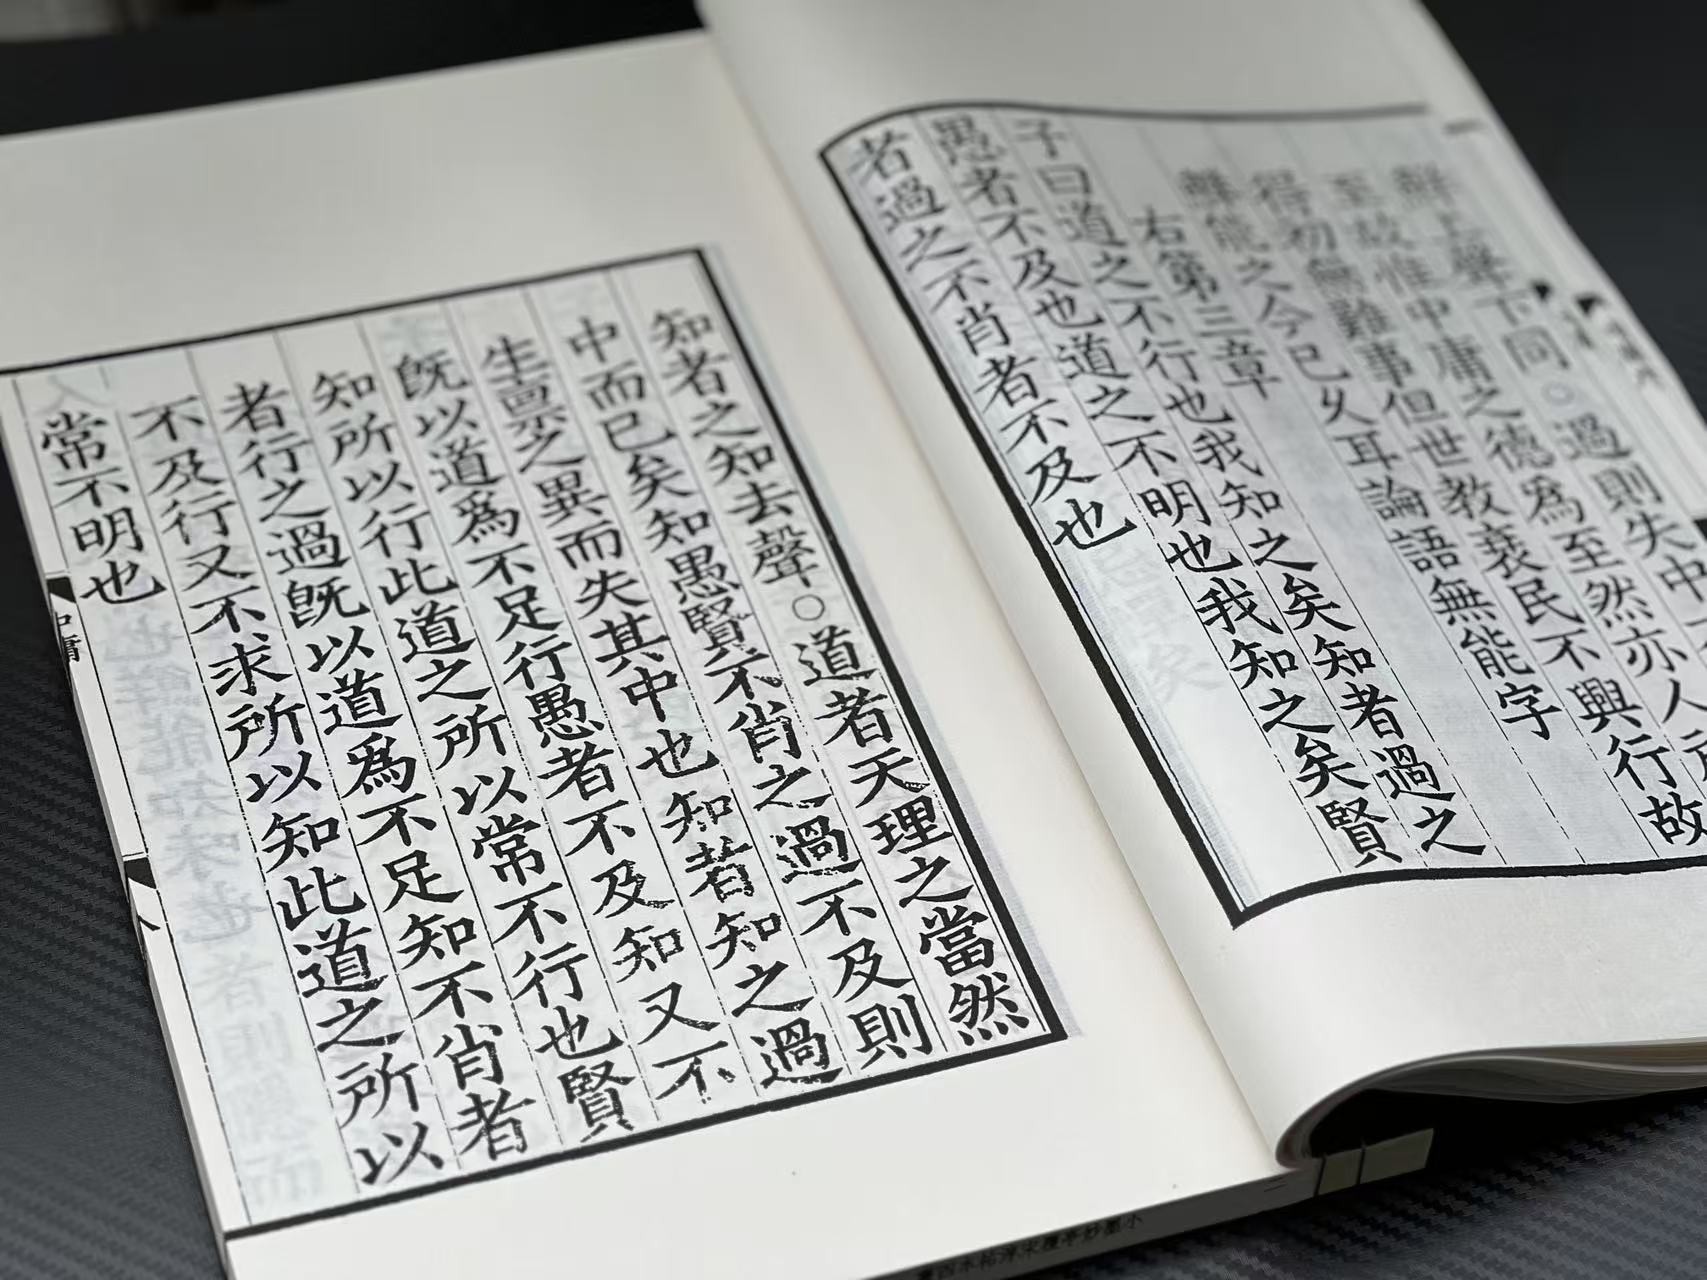 鮮上聲下同○過則失中
至故惟中庸之德爲至然亦人所
得初無難事但世教衰民不興行故
鮮能之今已久耳論語無能字
右第三章
子曰道之不行也我知之矣知者過之
愚者不及也道之不明也我知之矣賢
者過之不肖者不及也
知者之知去聲○道者天理之當然
中而已矣知愚賢不肖之過不及則
生禀之異而失其中也知者知之過
旣以道爲不足行愚者不及知又不
知所以行此道之所以常不行也賢
者行之過旣以道爲不足知不肖者
不及行又不求所以知此道之所以
常不明也
中庸
八